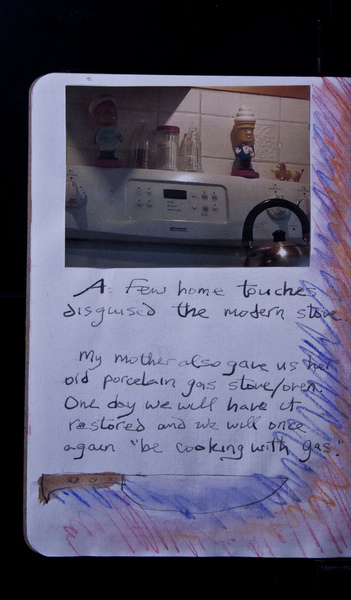 A Few home touches
disguised the modern stove.
My mother also gave us her
old porcelain gas stove/oven.
One day we will have it
restored and we will once
again "be cooking with gas."